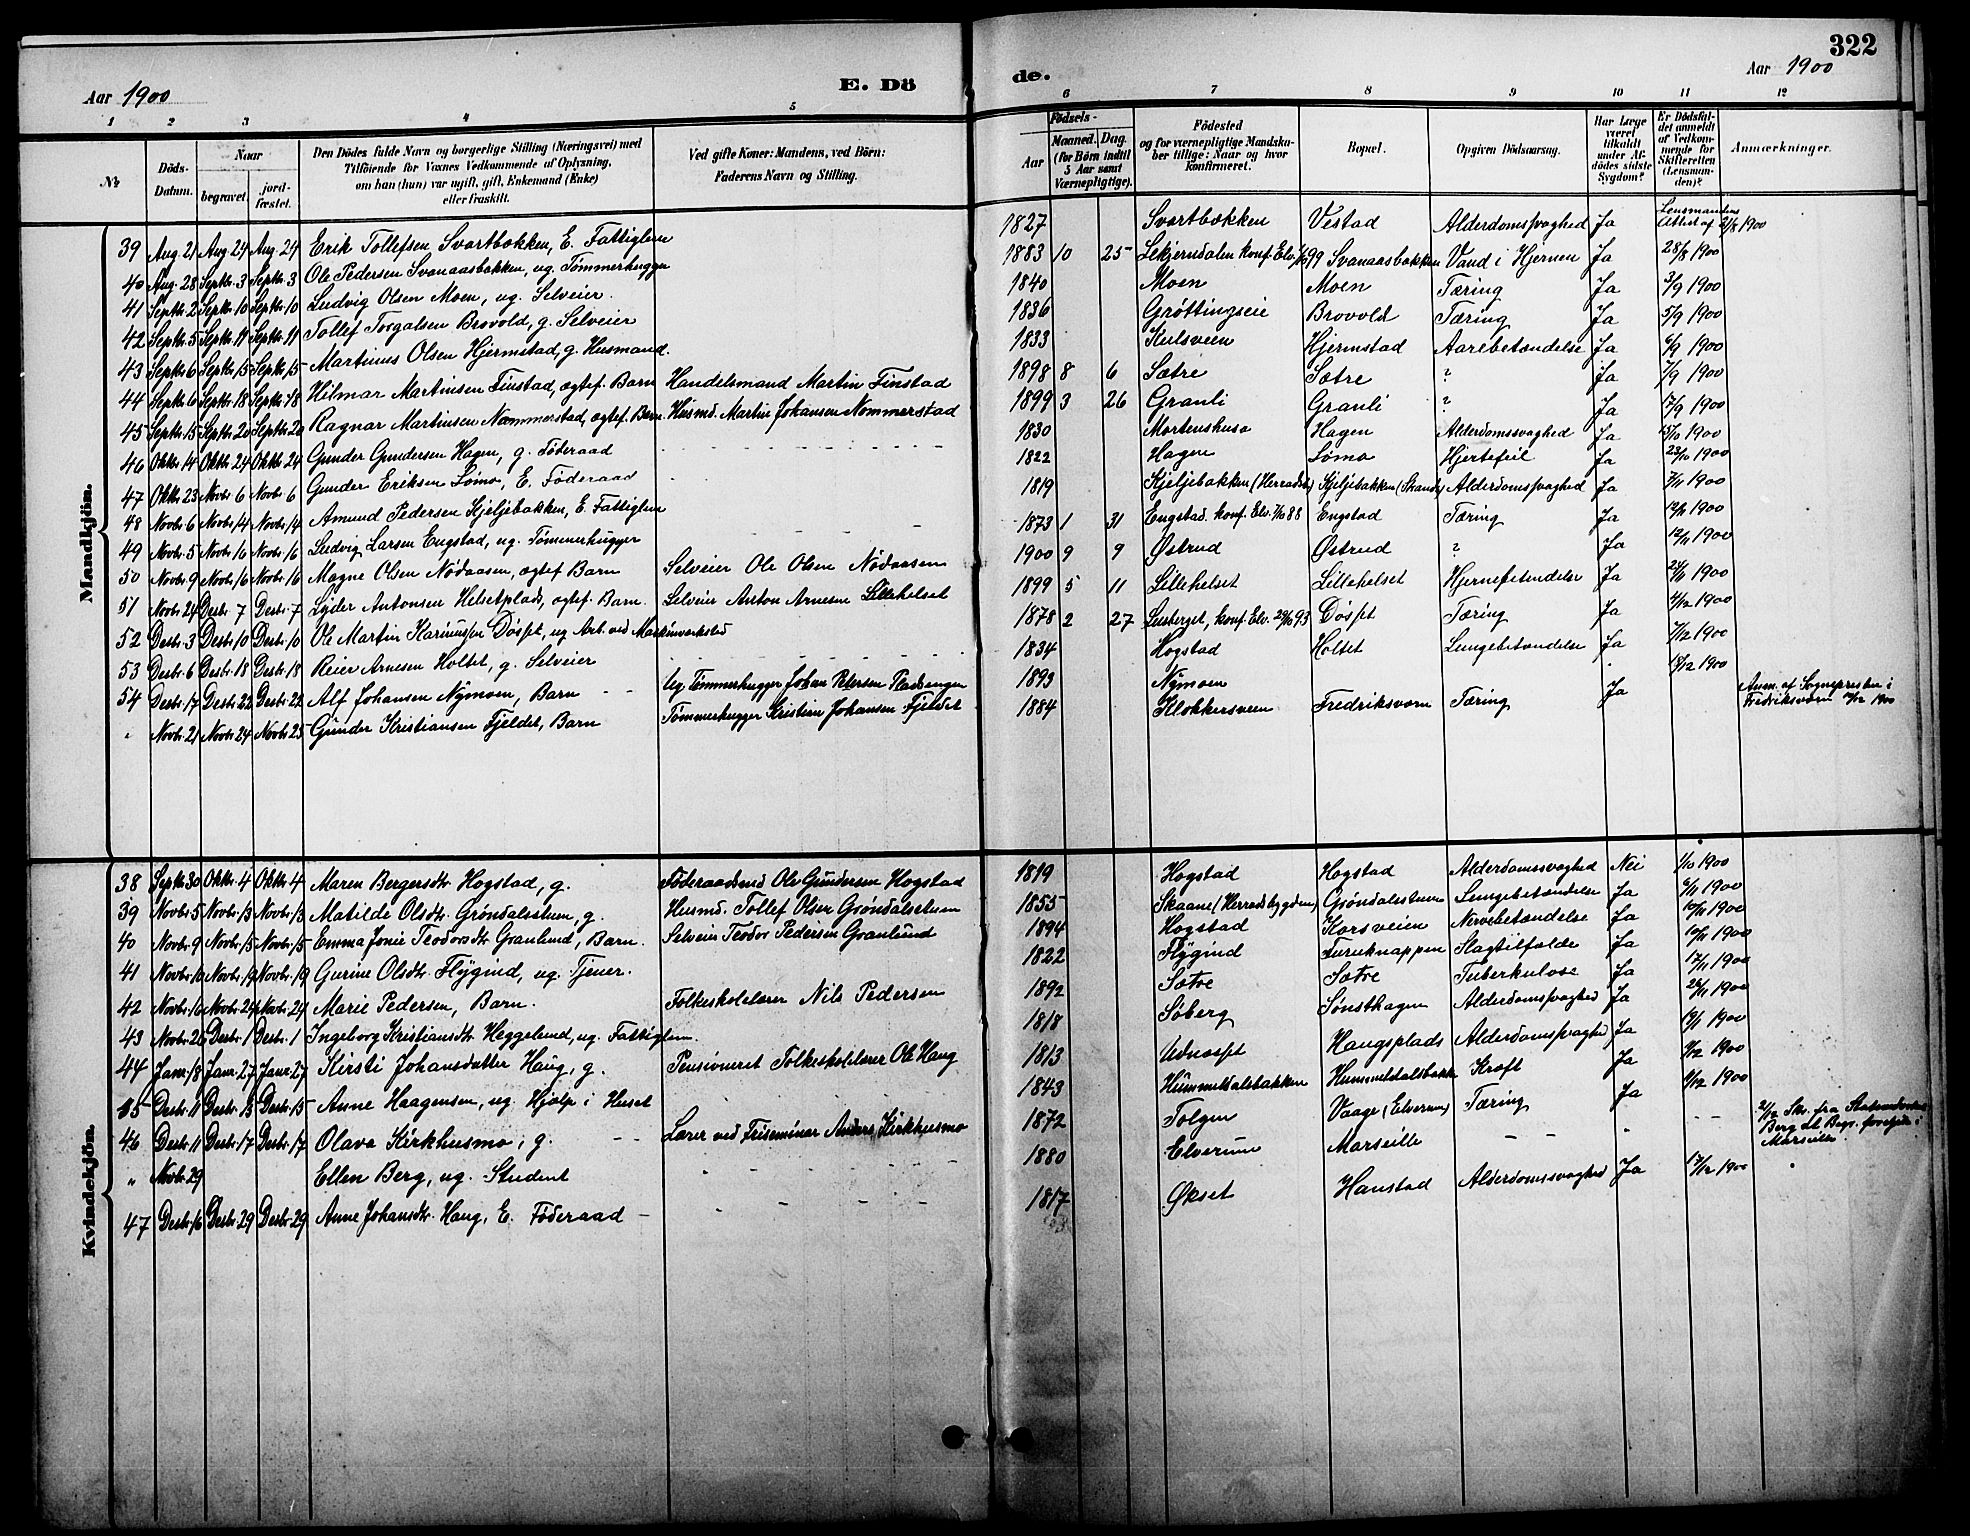 322
Aar 1900 E. Dö de. Aar 1900
1 2 3 4 5 6 7 8 9 10 11 12
№ Döds-Datum. Naar begravet. jord-fæstet. Den Dödes fulde Navn og borgerlige Stilling (Næringsvei) med Tilföiende for Voxnes Vedkommende af Oplysning, om han (hun) var ugift, gift, Enkemand (Enke) eller fraskilt. Ved gifte Koner: Mandens, ved Börn: Faderens Navn og Stilling. Aar Födsels- Maaned. Dag. (for Börn indtil 5 Aar samt Værnepligtige). Födested og for værnepligtige Mandskaber tillige: Naar og hvor Konfirmeret. Bopæl. Opgiven Dödsaarsag. Har Læge været tilkaldt under Afdödes sidste Sygdom? Er Dödsfaldet anmeldt af Vedkommende for Skifteretten (Lensmanden)? Anmærkninger.
Mandkjön.
39 Aug. 21 Aug 24 Aug. 24 Erik Tollefsen Svartbækken, E. Fattiglem 1827 Svartbækken Vestad Alderdomssvaghed Ja Lensmandens Attest af 21/8 1900
40 Aug. 28 Septbr. 3 Septbr. 3 Ole Pedersen Svanaasbakken, ug. Tømmerhugger 1883 10 25 konf. Elv. 99 Svanaasbakken Vand i Hjernen Ja 28/8 1900
41 Septbr. 2 Septbr. 10 Septbr. 10 Ludvig Olsen Moen, ug. Selveier. 1840 Moen Moen Tæring Ja 3/9 1900
42 Septbr. 5 Septbr. 11 Septbr. 11 Tollef Torgalsen Brovold, g. Selveier 1836 Grøttingseie Brovold Tæring Ja 5/9 1900
43 Septbr. 6 Septbr. 15 Septbr. 15 Martinus Olsen Hjermstad, g. Husmand. 1833 Kulsveen Hjermstad Aarebetændelse Ja 6/9 1900
44 Septbr. 6 Septbr. 18 Septbr. 18 Hilmar Martinsen Finstad, ægtef. Barn Handelsmand Martin Finstad 1898 8 6 Sætre Sætre ? Ja 7/9 1900
45 Septbr. 15 Septbr. 20 Septbr. 20 Ragnar Martinsen Nommerstad, ægtef. Barn. Husmd. Martin Johansen Nommerstad 1899 3 26 Granli Granli ? Ja 17/9 1900
46 Oktbr. 14 Oktbr. 24 Oktbr. 24 Gunder Gundersen Hagen, g. Føderaad 1830 Mortenshusø Hagen Alderdomssvaghed Ja 15/10 1900
47 Oktbr. 23 Novbr. 6 Novbr. 6 Gunder Eriksen Lømo, E. Føderaad 1822 Hagen Lømo Hjertefeil Ja 23/10 1900
48 Novbr. 6 Novbr. 14 Novbr. 14 Amund Pedersen Kjeljebakken, E. Fattiglem 1819 Kjeljebakken (Herradsb.) Kjeljebakken (Strands) Alderdomssvaghed Ja 7/11 1900
49 Novbr. 5 Novbr. 16 Novbr. 16 Ludvig Larsen Engstad, ug. Tømmerhugger 1873 1 31 Engstad. konf. Elv. 7/10 88 Engstad Tæring Ja 12/11 1900
50 Novbr. 9 Novbr. 16 Novbr. 16 Magne Olsen Nødaasen, ægtef Barn Selveier Ole Olsen Nødaasen 1900 9 9 Østrud Østrud ? Ja 12/11 1900
51 Novbr. 24 Desbr. 7 Desbr. 7 Lyder Antonsen Helsetplads, ægtef. Barn. Selveier Anton Arnesen Lillehelset 1899 5 11 Lillehelset Lillehelset Hjernebetændelse Ja 24/11 1900
52 Desbr. 3 Desbr. 10 Desbr. 10 Ole Martin Karinussen Døsset, ug Arb. ved Maskinverksted 1878 2 27 Lusberget, konf. Elv. 29/10 93 Døsset Tæring Ja 4/12 1900
53 Desbr. 6 Desbr. 18 Desbr. 18 Reier Arnesen Holtet, g. Selveier 1834 Hogstad Holtet Lungebetændelse Ja 7/12 1900
54 Desbr. 17 Desbr. 22 Desbr. 22 Alf Johansen Nymoen, Barn Ug Tømmerhugger Johan Petersen Pladsengen 1893 Nymoen 18/12 1900
" Novbr. 21 Novbr. 24 Novbr. 25 Gunder Kristiansen Fjeldet, Barn Tømmerhugger Kristian Johansen Fjeldet 1884 Klokkersveen Fredriksværn Tæring Ja Anm. af Sognepresten i Fredriksværn 1900
Kvindekjön.
38 Septbr. 30 Oktbr. 4 Oktbr. 4 Maren Bergersdtr. Hogstad, g. Føderaadsmd Ole Gundersen Hogstad 1819 Hogstad Hogstad Alderdomssvaghed Nei 1/10 1900
39 Novbr. 5 Novbr. 13 Novbr. 13 Matilde Olsdtr. Grøndalsstuen, g. Husmd. Tollef Olsen Grøndalsstuen 1855 Skaane (Herradsbygden) Grøndalsstuen Lungebetændelse Ja 6/11 1900
40 Novbr. 9 Novbr. 15 Novbr. 15 Emma Jonie Teodorsdtr Granlund, Barn. Selveier Teodor Pedersen Granlund 1894 Hogstad Korsveien Nervebetændelse Ja 10/11 1900
41 Novbr. 10 Novbr. 19 Novbr. 19 Gurine Olsdtr. Flygind, ug. Tjener. 1822 Flygind Furuknappen Slagtilfælde Ja 10/11 1900
42 Novbr. 16 Novbr. 24 Novbr. 24 Marie Pedersen, Barn. Folkeskolelærer Nils Pedersen 1892 Sætre Sætre Tuberkulose Ja 17/11 1900
43 Novbr. 26 Desbr. 1 Desbr. 1 Ingeborg Kristiansdtr Heggelund, ug. Fattiglem. 1818 Søberg Sønsthagen Alderdomssvaghed Ja 28/11 1900
44 Janr. 18 Janr. 27 Janr. 27 Kirsti Johansdatter Haug, g. Pensioneret Folkeskolelærer Ole Haug 1813 Udnæsset Haugsplads Alderdomssvaghed Ja 19/1 1900
45 Desbr. 11 Desbr. 15 Desbr. 15 Anne Haagensen, ug Hjælp i Huset 1843 Hummeldalsbakken Hummeldalsbakk Kræft Ja 11/12 1900
46 Desbr. 11 Desbr. 17 Desbr. 17 Olava Kirkhusmo, g. Lærer ved Friseminar Anders Kirkhusmo 1872 Tolgen Vaage (Elverum) Tæring Ja 11/12 1900
" Novbr. 29 Ellen Berg, ug. Student 1880 Elverum Marseille 2/12 Skr. fra Berg Marseille
47 Desbr. 16 Desbr. 29 Desbr. 29 Anne Johansdtr. Haug, E. Føderaad 1817 Økset Hanstad Alderdomssvaghed Ja 17/12 1900